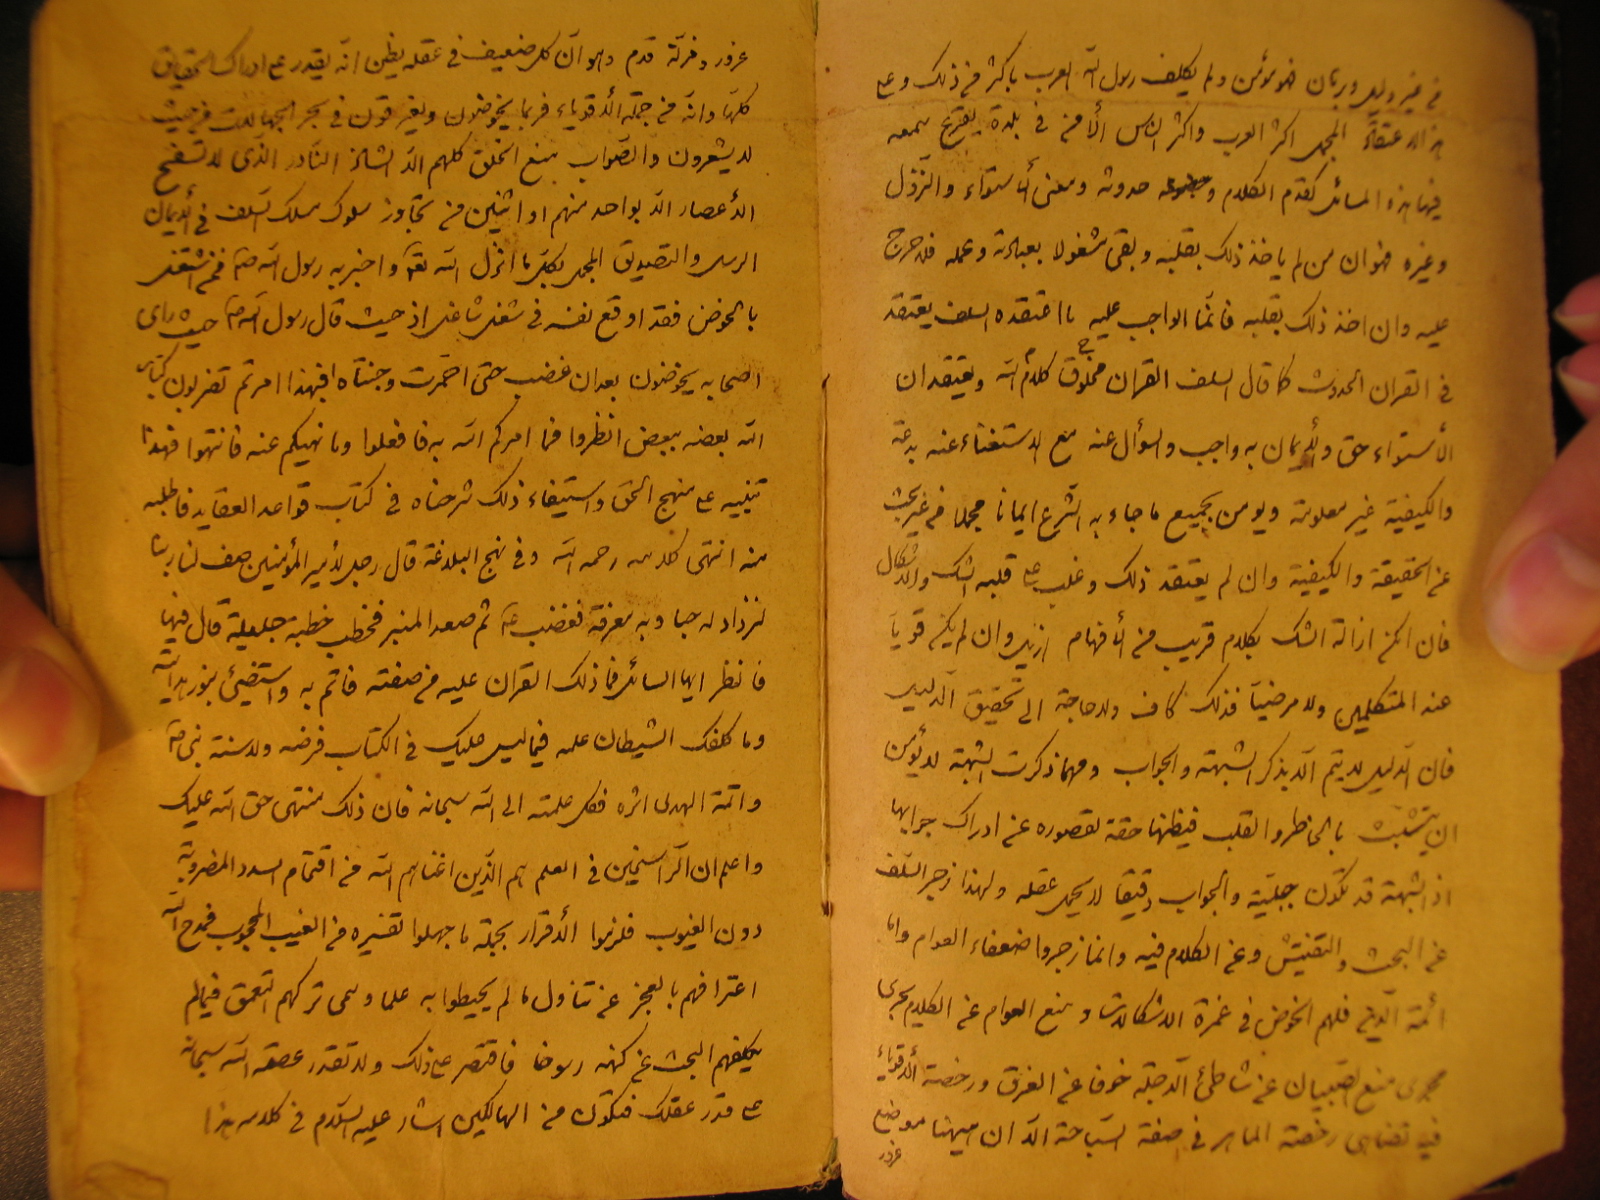 في غير دليل وبرهان فهو مؤمن ولم يكلف رسول الله العرب باكثر من ذلك وعلى
هذا الاعتقاد المجمل اكثر العرب واكثر الناس الا من في بلدة يقرع سمعه
فيها هذه المسائل كقدم الكلام وحدوثه ومعنى الأستواء والنزول
وغيره فهو ان من لم ياخذ ذلك بقلبه وبقى مشغولا بعبادته وعمله فلا حرج
عليه وان اخذ ذلك بقلبه فانما الواجب عليه ما اعتقده السلف يعتقد
في القران الحدوث كما قال السلف القران مخلوق كلام الله ويعتقد ان
الأستواء حق والأيمان به واجب والسؤال عنه مع الاستغناء عنه بدعة
والكيفية غير معلومة ويومن بجميع ما جاء به الشرع ايمانا مجملا من غير بحث
عن الحقيقة والكيفية وان لم يعتقد ذلك وغلب على قلبه الشك والاشكال
فان امكن ازالة الشك بكلام قريب من الأفهام ازيل وان لم يكن قويا
عند المتكلمين ولا مرضيا فذلك كاف ولا حاجة الى تحقيق الدليل
فان الدليل لا يتم الا بذكر الشبهة والجواب ومهما ذكرت الشبهة لا يؤمن
ان يتشبث بالخاطر والقلب فيظنها حقة لقصوره عن ادراك جوابها
اذ الشبهة قد تكون جلية والجواب دقيقا لا يحمل عقله ولهذا زجر السلف
عن البحث والتفتيش وعن الكلام فيه وانما زجروا ضعفاء العوام واما
ائمة الدين فلهم الخوض في غمرة الاشكالات ومنع العوام عن الكلام يجرى
مجرى منع الصبيان عن شاطئ الدجلة خوفا عن الغرق ورخصة الأقوياء
فيه تضاهى رخصة الماهر في صفة السباحة الا ان ههنا موضع
غرور
غرور ومزلة قدم وهو ان كل ضعيف في عقله يظن انه يقدر على ادراك الحقايق
كلها وانه من جملة الأقوياء فربما يخوضون ويغرقون في بحر الجهالات من حيث
لا يشعرون والصواب منع الخلق كلهم الا الشاذ النادر الذى لا تسمح
الأعصار الا بواحد منهم او اثنين من تجاوز سلوك مسلك السلف في الأيمان
الرسل والتصديق المجمل بكل ما انزل الله تعالى واخبر به رسول الله فمن اشتغل
بالخوض فقد اوقع نفسه في شغل شاغل اذ حيث قال رسول الله حيث راى
اصحابه يخوضون بعد ان غضب حتى احمرت وجنتاه افبهذا امرتم تضربون كتاب
الله بعضه ببعض انظروا فما امركم الله به فافعلوا وما نهيكم عنه فانتهوا فهذا
تنبيه على منهج الحق واستيفاء ذلك شرحناه في كتاب قواعد العقايد فاطلبه
منه انتهى كلامه رحمه الله وفي نهج البلاغة قال رجل لأمير المؤمنين صف لنا ربنا
لنزداد له حبا وبه معرفة فغضب ثم صعد المنبر فخطب خطبة جليلة قال فيها
فانظر ايها السائل فما ذلك القران عليه من صفته فائتم به واستضئ بنور هدايته
وما كلفك الشيطان علمه فيما ليس عليك في الكتاب فرضه ولا سنة نبى
وائمة الهدى اثره فكل علمه الى الله سبحانه فان ذلك منتهى حق الله عليك
واعلم ان الراسخين في العلم هم الذين اغناهم الله من اقتحام السدد المضروبة
دون الغيوب فلزموا الأقرار بجملة ما جهلوا تفسيره من الغيب المحجوب فمدح الله
اعترافهم بالعجز عن تناول ما لم يحيطوا به علما وسمى تركهم التعمق فيما لم
يكلفهم البحث عن كنهه رسوخا فاقتصر على ذلك ولا تقدر عظمة الله سبحانه
على قدر عقلك فتكون من الهالكين اشار عليه السلام في كلامه هذا